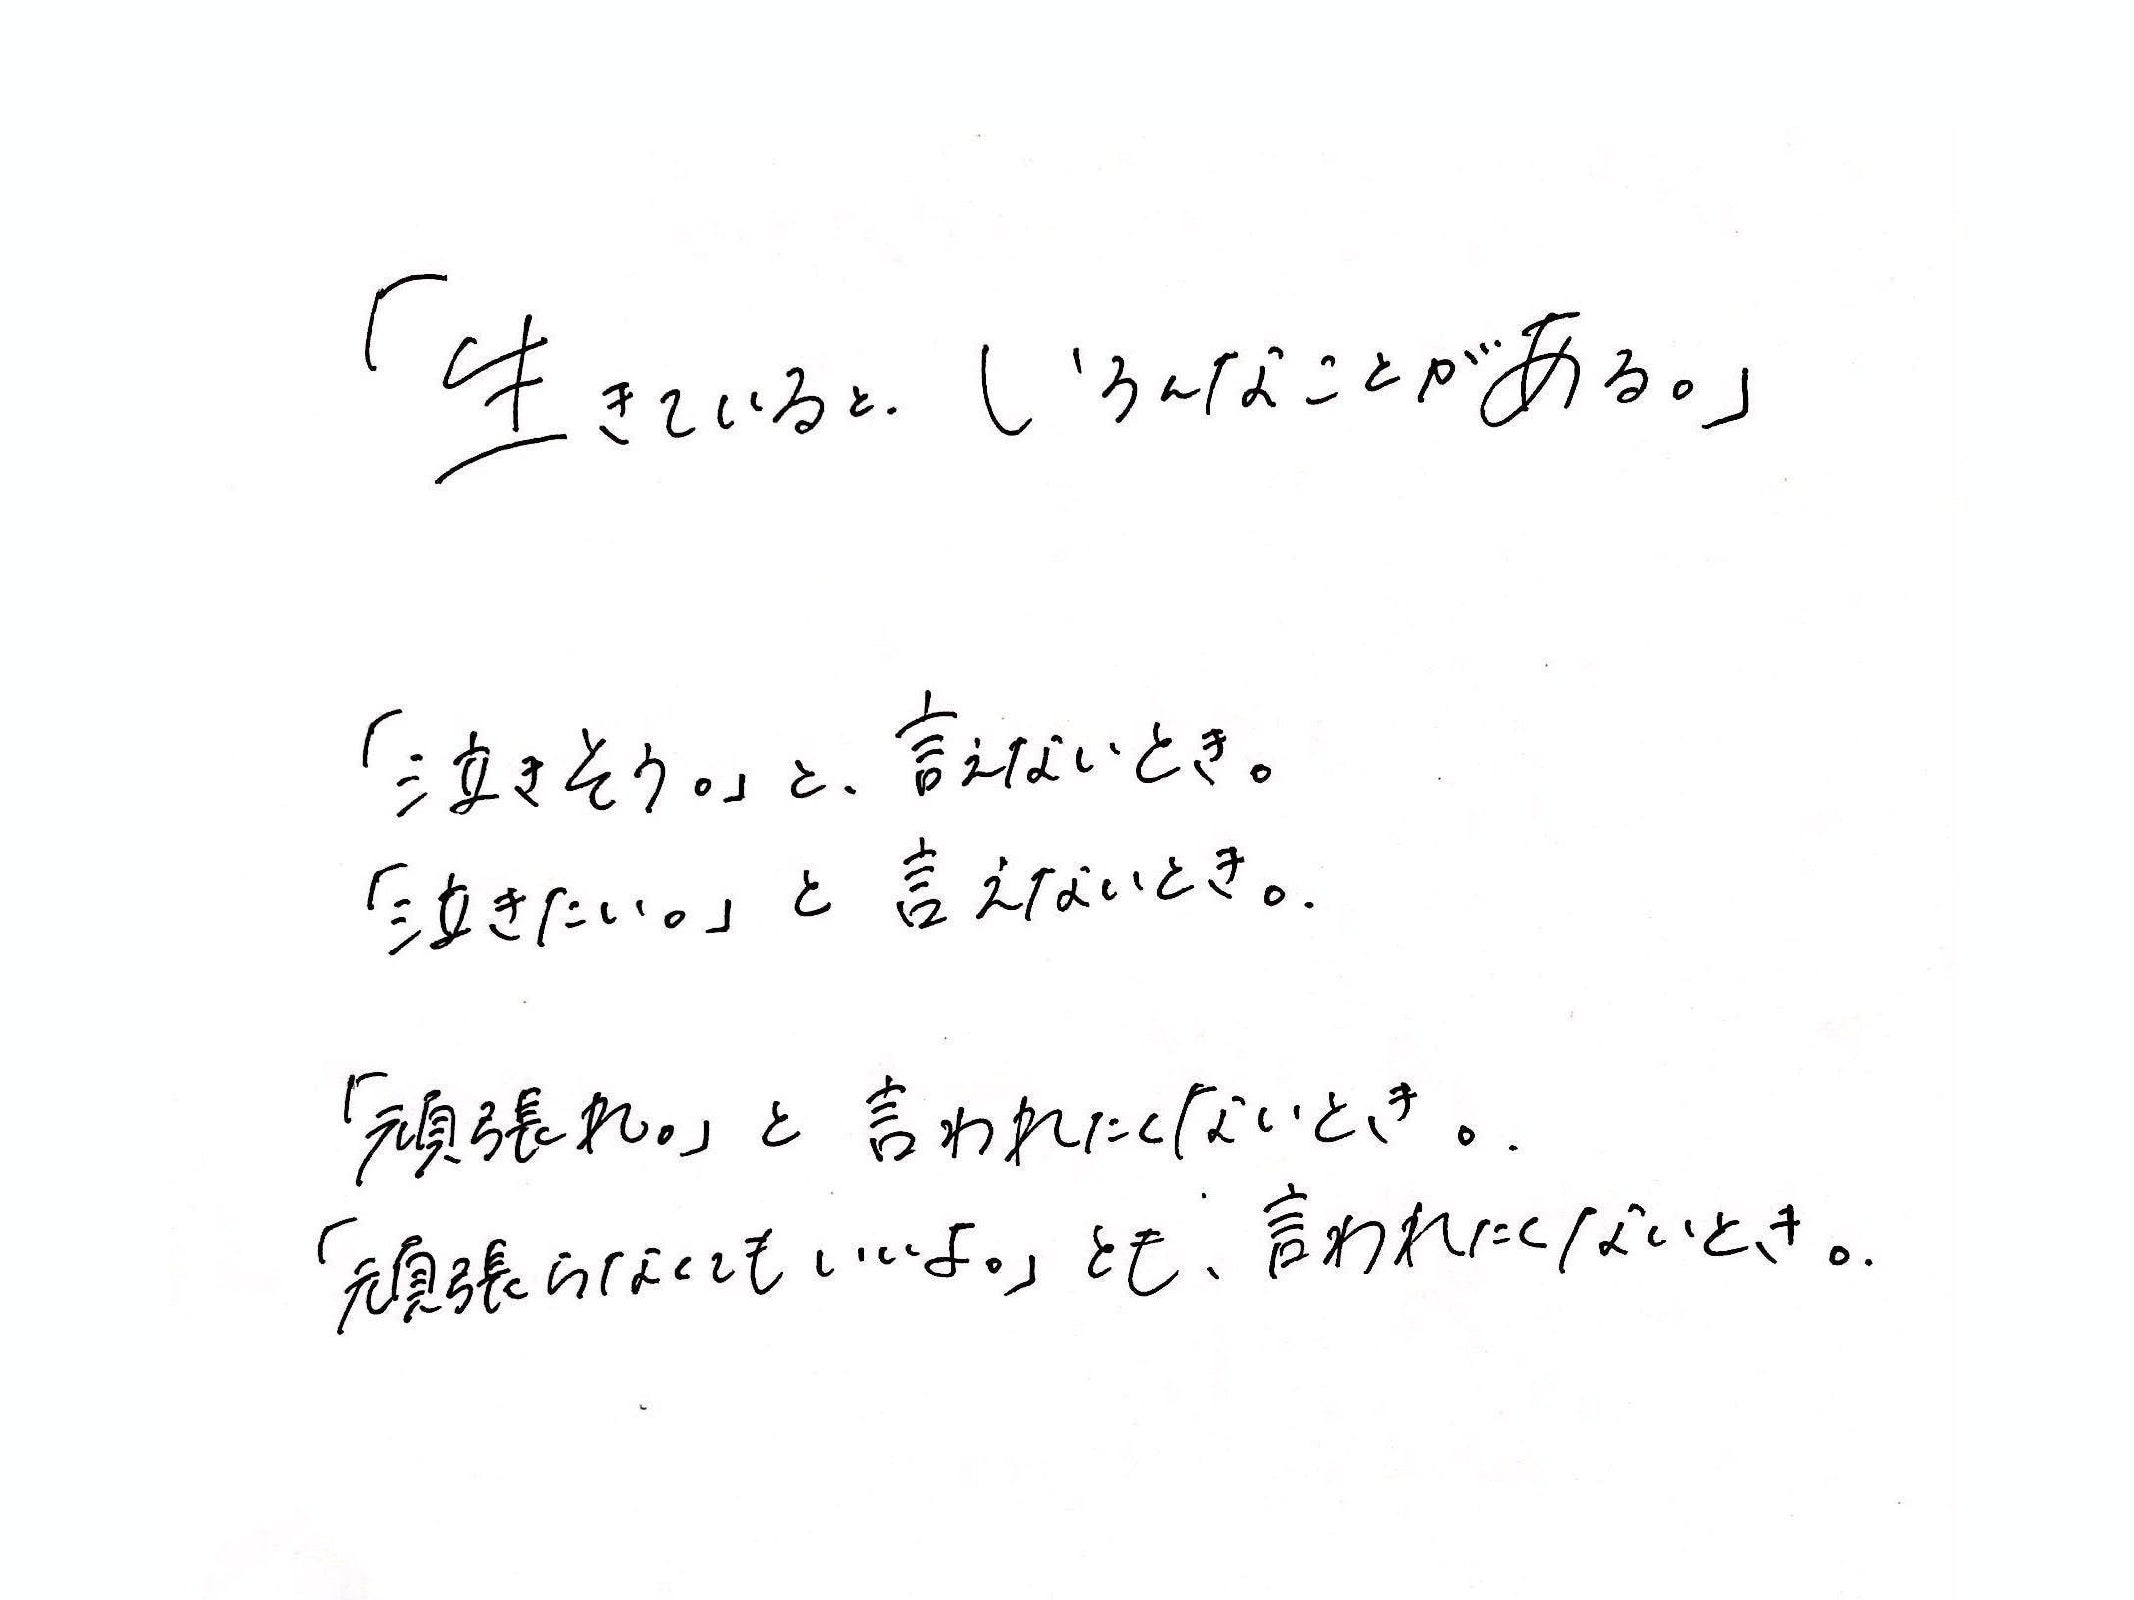 「生きていると、いろんなことがある。」
「泣きそう。」と、言えないとき。
「泣きたい。」と言えないとき。
「頑張れ。」と言われたくないとき。
「頑張らなくてもいいよ。」とも、言われたくないとき。